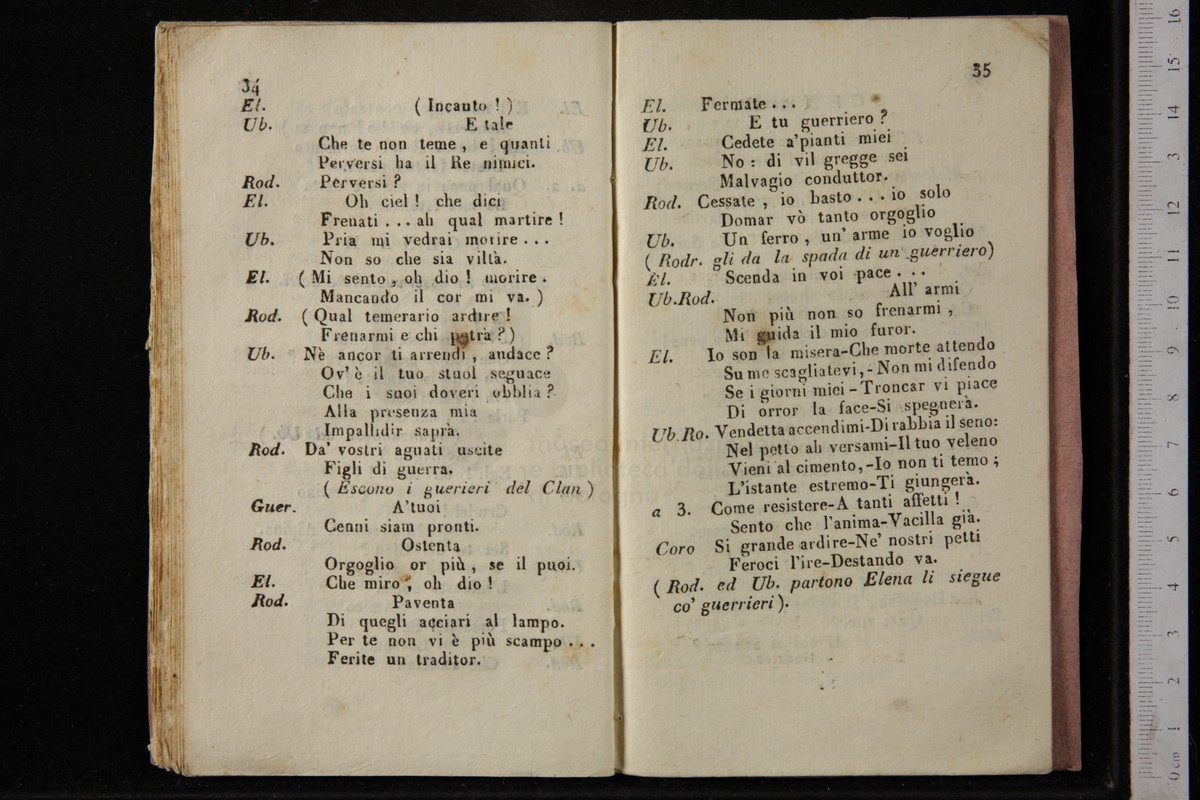 34
El. ( Incauto ! )
Ub. E tale
Che te non teme , e quanti
Perversi ha il Re nimici.
Rod. Perversi ?
El. Oh ciel ! che dici
Frenati . . . ah qual martire !
Ub. Pria mi vedrai morire . . .
Non so che sia viltà.
El. ( Mi sento , oh dio ! morire .
Mancando il cor mi va. )
Rod. ( Qual temerario ardire !
Frenarmi e chi potrà ? )
Ub. Nè ancor ti arrendi , audace ?
Ov' è il tuo stuol seguace
Che i suoi doveri obblia ?
Alla presenza mia
Impallidir saprà.
Rod. Da' vostri aguati uscite
Figli di guerra.
( Escono i guerieri del Clan )
Guer. A'tuoi
Cenni siam pronti.
Rod. Ostenta
Orgoglio or più , se il puoi.
El. Che miro , oh dio !
Rod. Paventa
Di quegli acciari al lampo.
Per te non vi è più scampo . . .
Ferite un traditor.
35
El. Fermate . . .
Ub. E tu guerriero ?
El. Cedete a'pianti miei
Ub. No : di vil gregge sei
Malvagio conduttor.
Rod. Cessate , io basto . . . io solo
Domar vò tanto orgoglio
Ub. Un ferro , un' arme io voglio
( Rodr. gli da la spada di un guerriero)
El. Scenda in voi pace . . .
Ub.Rod. All' armi
Non più non so frenarmi ,
Mi guida il mio furor.
El. Io son la misera-Che morte attendo
Su me scagliatevi , - Non mi difendo
Se i giorni miei - Troncar vi piace
Di orror la face-Si spegnerà.
Ub.Ro. Vendetta accendimi-Di rabbia il seno:
Nel petto ah versami-Il tuo veleno
Vieni al cimento, -Io non ti temo ;
L'istante estremo-Ti giungerà.
a 3. Come resistere-A tanti affetti !
Sento che l'anima-Vacilla già.
Coro Si grande ardire-Ne' nostri petti
Feroci l'ire-Destando va.
( Rod. ed Ub. partono Elena li siegue
co' guerrieri ).
0 cm 1 2 3 4 5 6 7 8 9 10 11 12 13 14 15 16